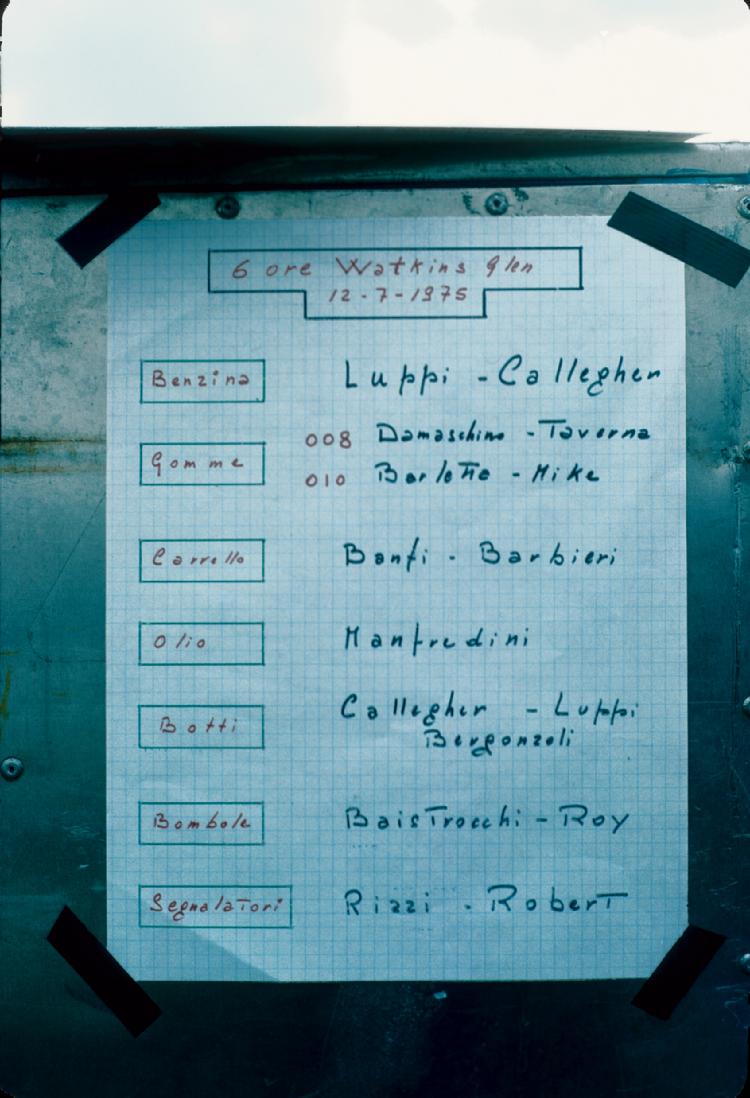 6 ore Watkins Glen
12-7-1975
Benzina Luppi - Callegher
Gomme 008 Damaschino - Taverna
010 Barlotta - Mike
Carrello Banfi - Barbieri
Olio Manfredini
Botti Callegher - Luppi
Bergonzoli
Bombole Baistrocchi - Roy
Segnalatori Rizzi - Robert